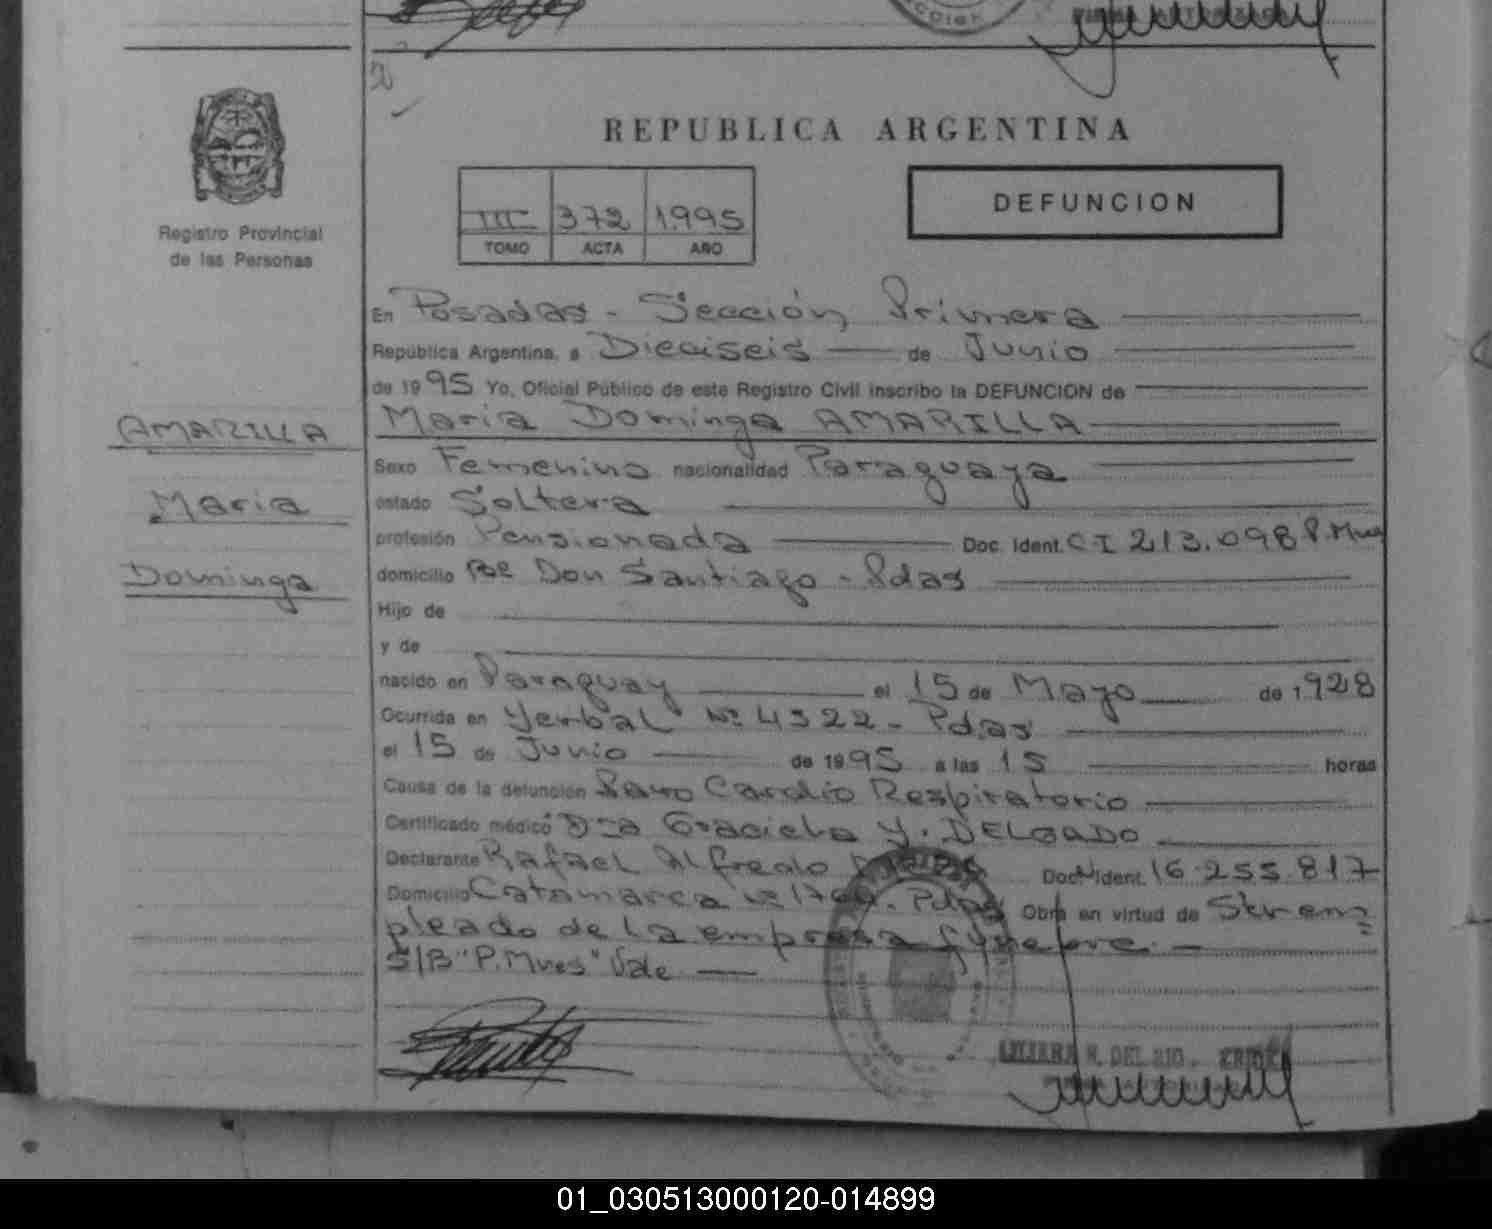 REPUBLICA ARGENTINA
DEFUNCION
III 372 1995
TOMO ACTA AÑO
Registro Provincial
de las Personas
AMARILLA
Maria
Dominga
En Posadas - Sección Primera
República Argentina, a Dieciseis de Junio
de 1995 Yo, Oficial Público de este Registro Civil inscribo la DEFUNCION de
Maria Dominga AMARILLA
Sexo Femenino nacionalidad Paraguaya
estado Soltera
profesión Pensionada Doc. Ident. CI 213.098 P. Mnes
domicilio Don Santiago - Pdas
Hijo de
y de
nacido en Paraguay el 15 de Mayo de 1.928
Ocurrida en Yerbal Nº 4322 - Pdas
el 15 de Junio de 1995 a las 15 horas
Causa de la defunción Paro Cardio Respiratorio
Certificado médico Dra Graciela Y. DELGADO
Declarante Rafael Alfredo Doc. Ident. 16.255.817
Domicilio Catamarca Pdas Obra en virtud de Ser em=
pleado de la empresa fúnebre. -
S/B "P. Mnes" Vale
DEL RIO
01_030513000120-014899